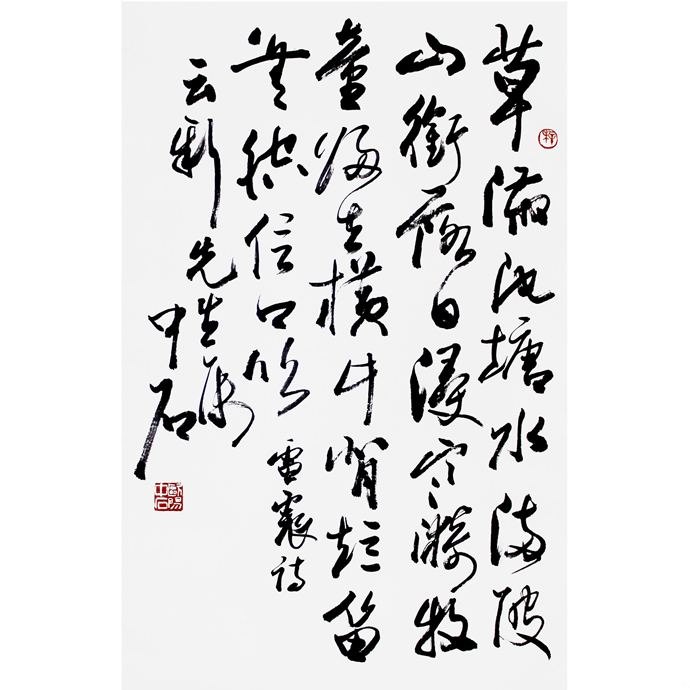 草满池塘水满陂
山衔落日浸寒漪牧
童归去横牛背短笛
無腔信口吹 雷震诗
云新先生属
中石
歐陽中石